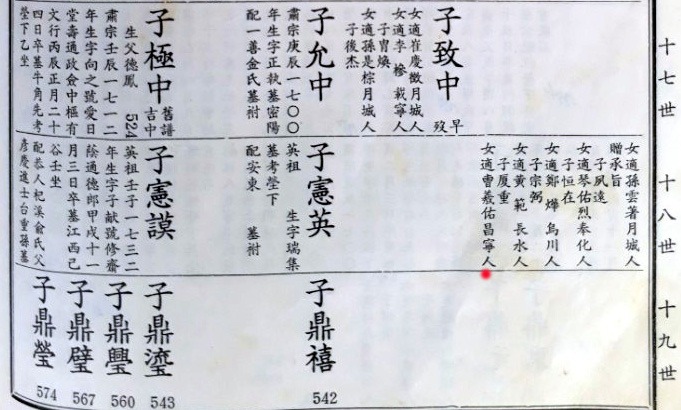 十七世
子致中
早歿
女適崔慶徵月城人
女適李 椮 載寧人
子胄煥
女適孫是椋月城人
子後杰
子允中
肅宗庚辰一七〇〇
年生字正執墓密陽
配一善金氏墓祔
子極中
舊譜
吉中
生父德鳳 524
肅宗壬辰一七一二
年生字向之號愛日
堂壽通政僉中樞有
文行丙辰正月二十
四日卒墓牛角先考
塋下乙坐
十八世
女適孫雲著月城人
贈承旨
子夙遠
女適琴佑烈奉化人
子恒在
女適鄭 燁 烏川人
子宗弼
女適黃 範 長水人
子廈重
女適曺羲佑昌寧人
子憲英
英祖 生字瑞集
墓考塋下
配安東 墓祔
子憲謨
英祖壬子一七三二
年生字子献號修齋
蔭通德郎甲戌十一
月三日卒墓江西己
谷壬坐
配恭人杞溪俞氏父
彥慶進士台重孫墓
十九世
子鼎禧
542
子鼎
543
子鼎
560
子鼎璧
567
子鼎瑩
574